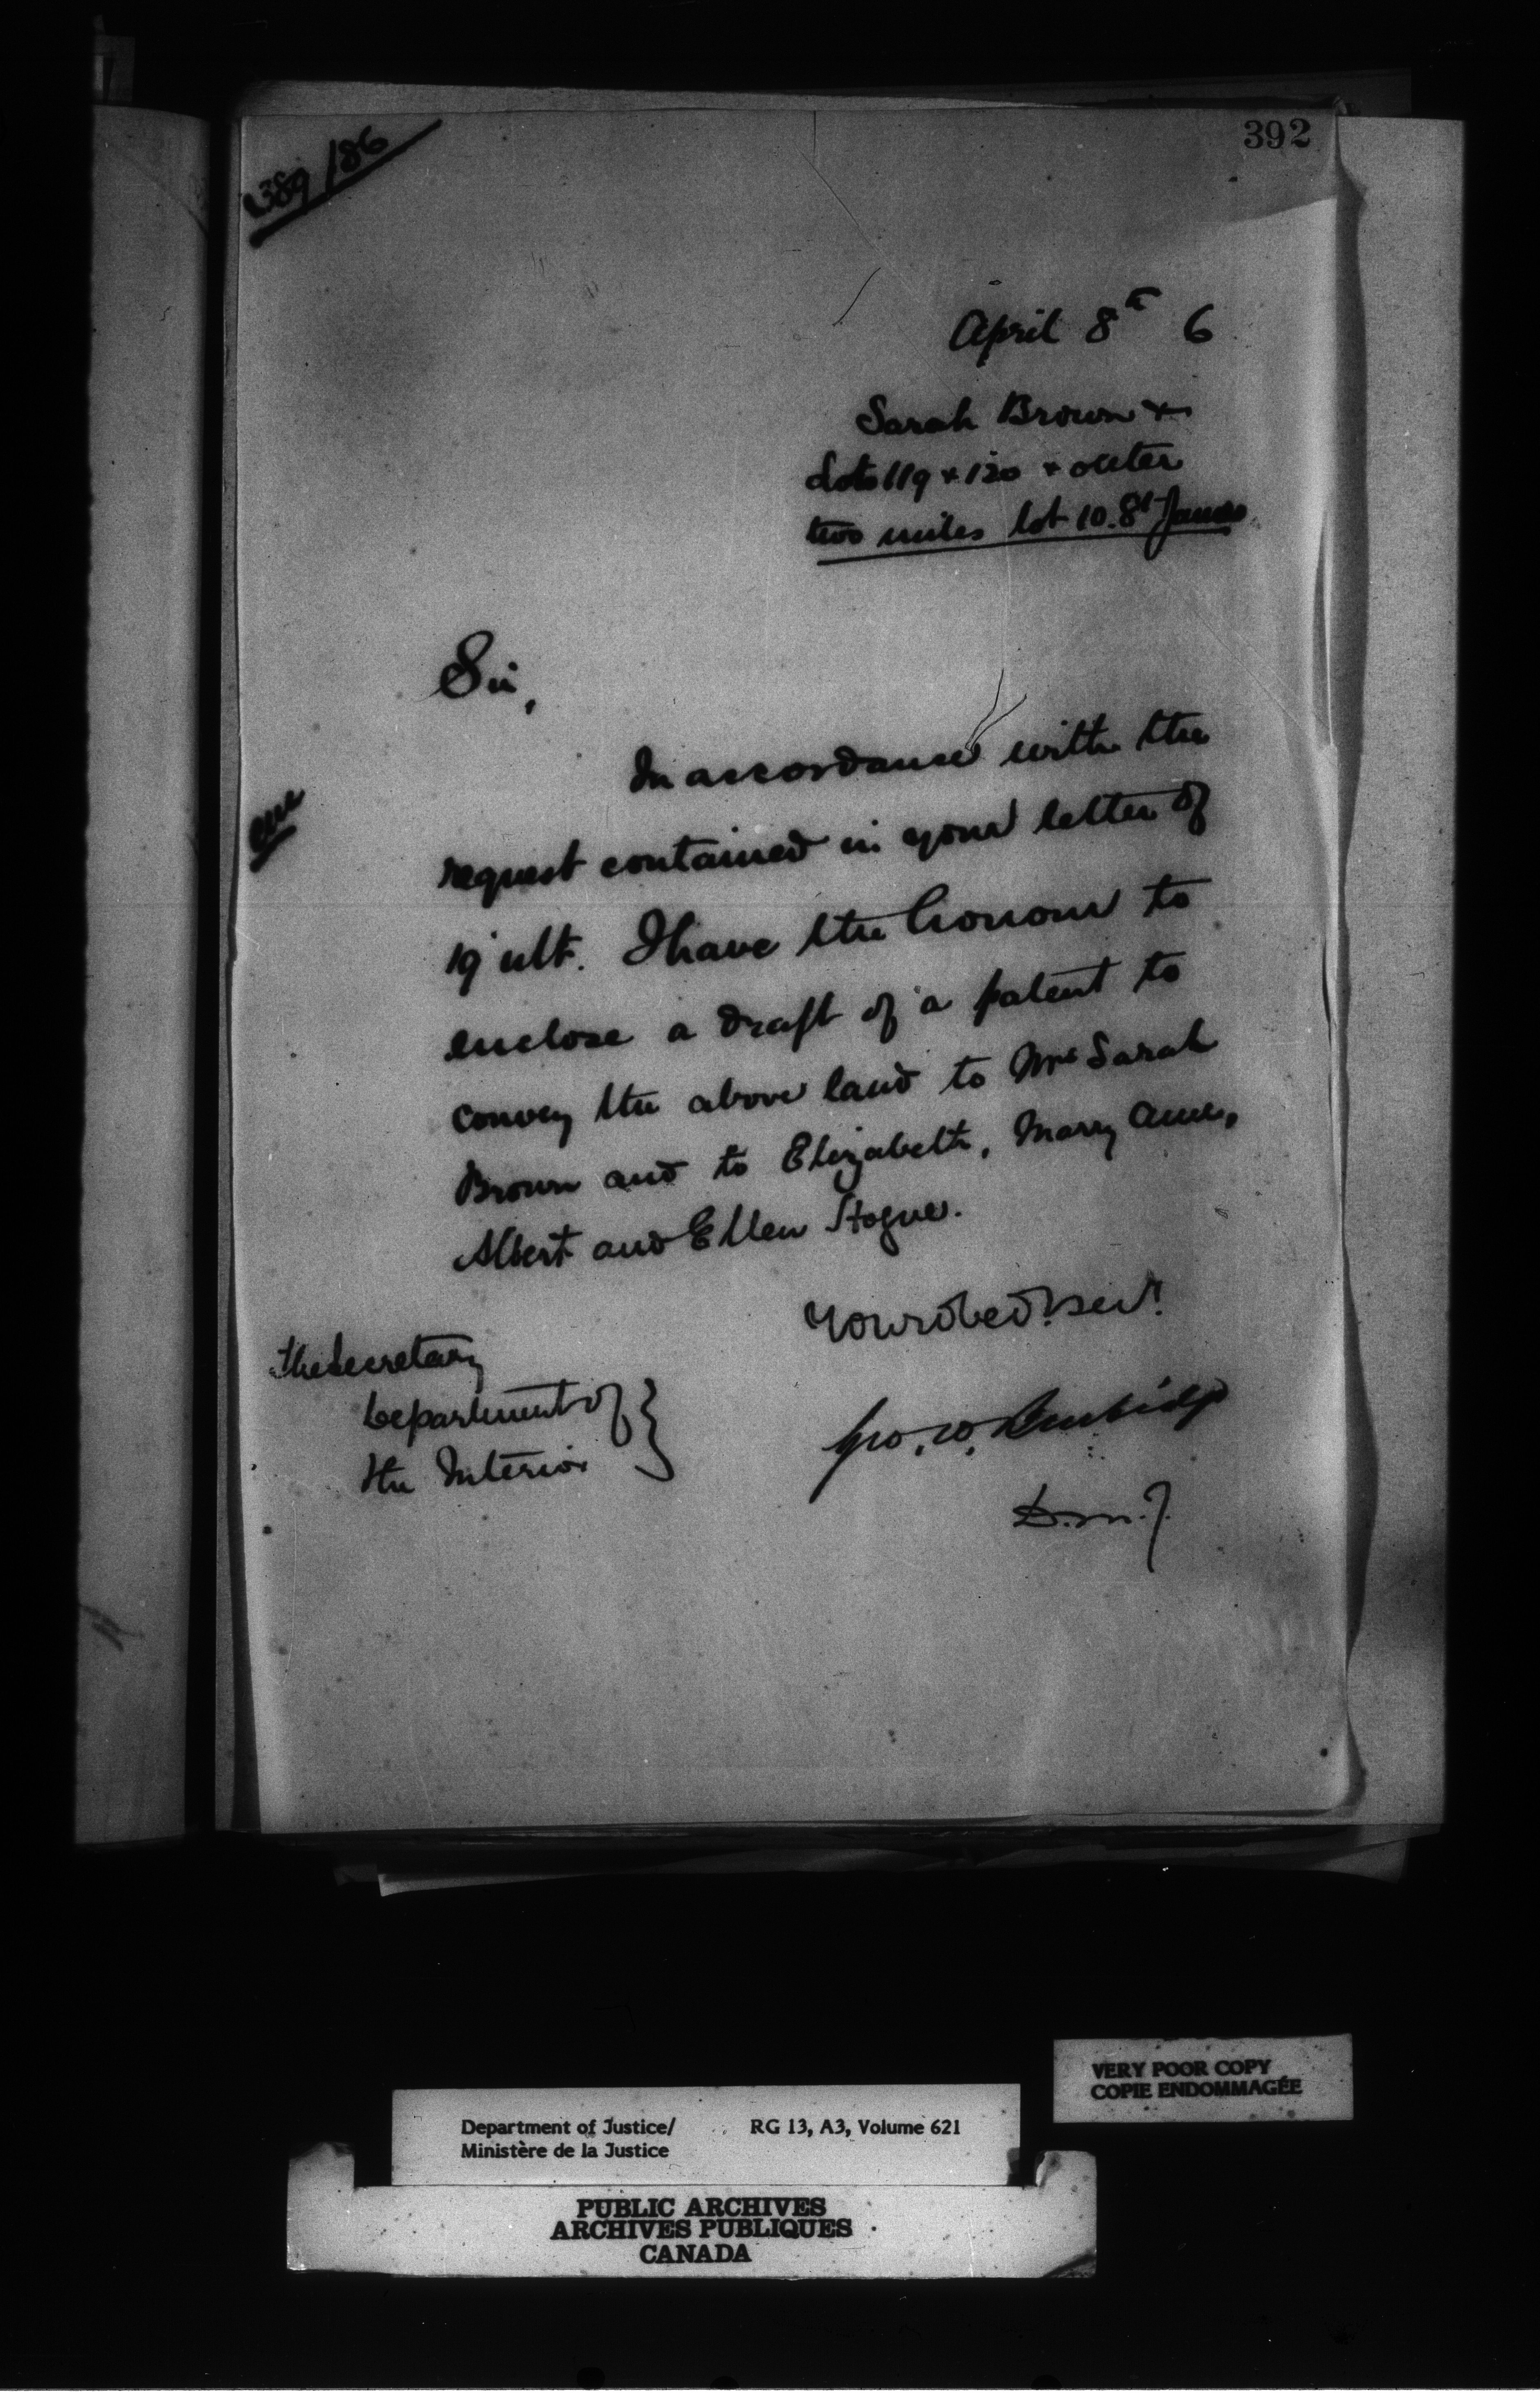 392
389/86
April 8th 6
Sarah Brown &
Lots 119 & 120 & outer
two miles lot 10. St James
Sir,
In accordance with the
enc
request contained in your letter of
19 ult. I have the honour to
enclose a draft of a patent to
convey the above land to Mrs Sarah
Brown and to Elizabeth, Marry Ann,
Albert and Ellen Hogue.
Your obed. serv.
The Secretary
Department of
the Interior
Geo. W. Burbidge
D.M.J.
VERY POOR COPY
COPIE ENDOMMAGÉE
Department of Justice/ RG 13, A3, Volume 621
Ministère de la Justice
PUBLIC ARCHIVES
ARCHIVES PUBLIQUES
CANADA